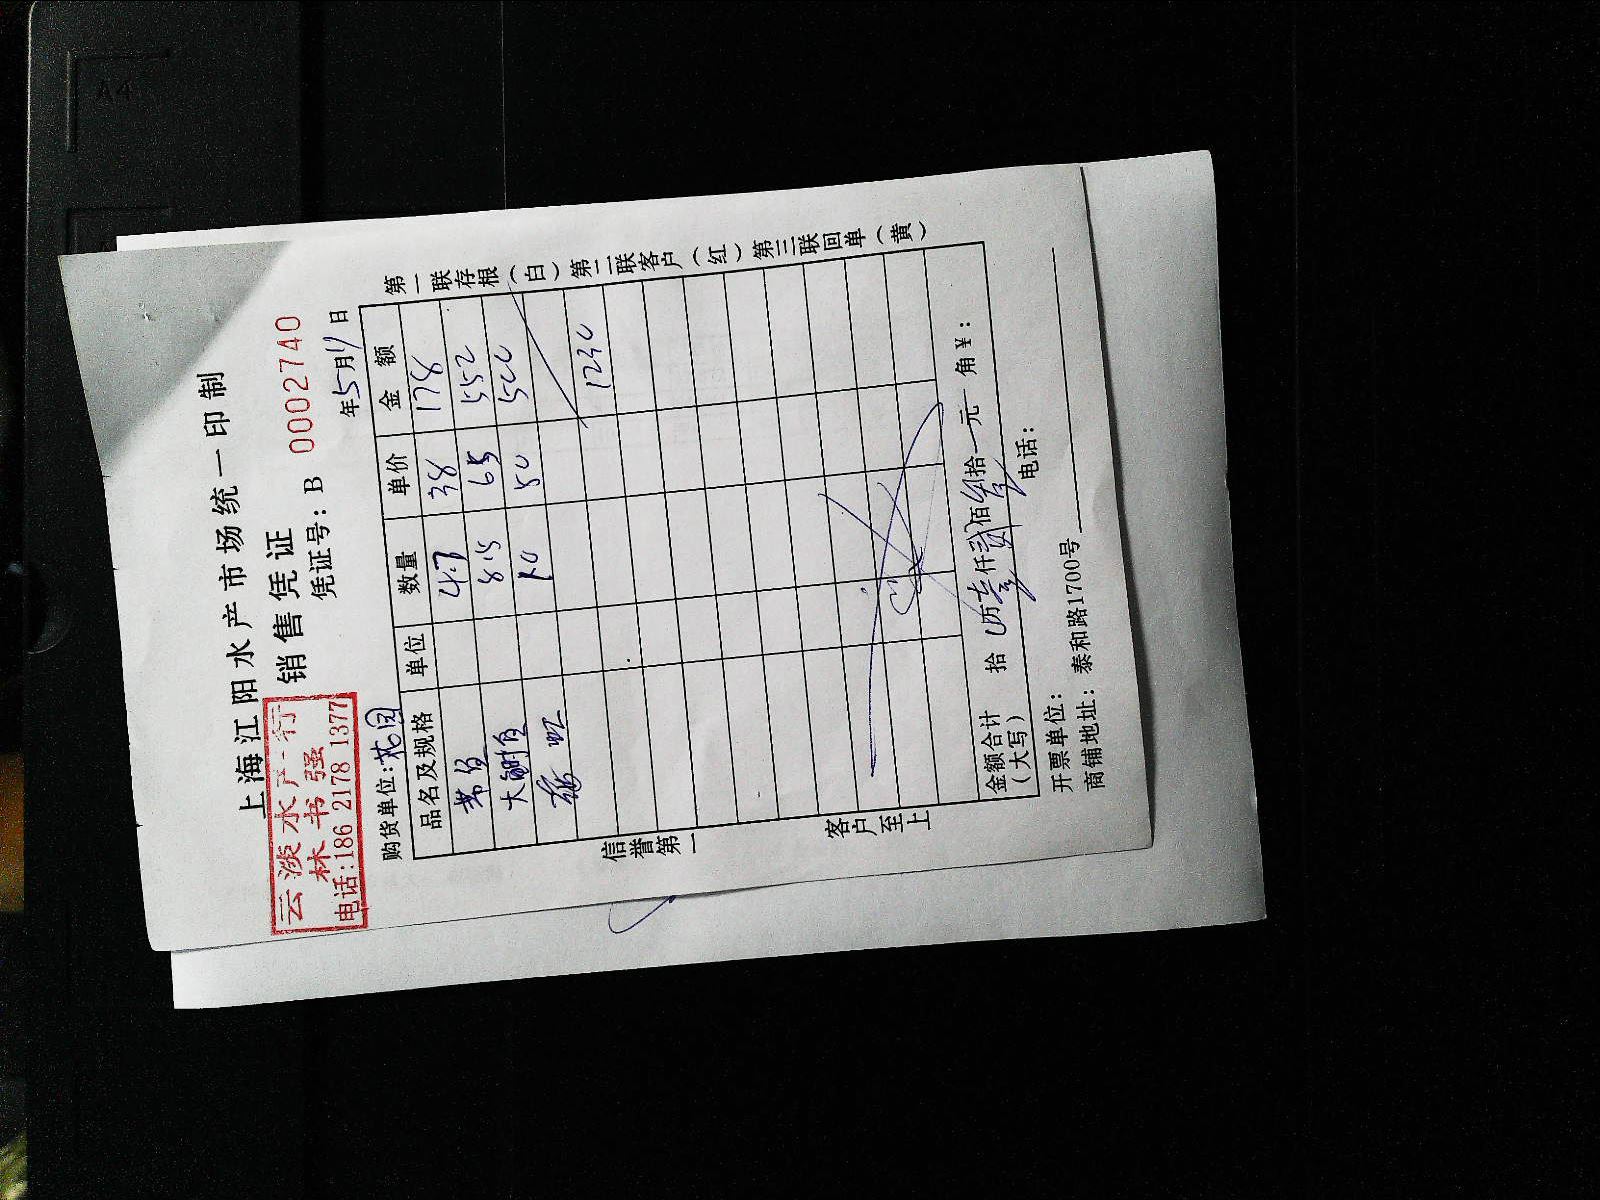 A4
上海江阳水产市场统一印制
云淡水产行
林书强
电话:186 2178 1377
销售凭证
凭证号:B 0002740
年5月17日
购货单位:花园
品名及规格 单位 数量 单价 金额
4.7 38 178
大鲥鱼 8.5 65 552
10 50 500
1230
信誉第一
客户至上
第一联存根(白)第二联客户(红)第三联回单(黄)
金额合计(大写) 拾 万壹仟贰佰叁拾 元 角 ¥:
开票单位: 电话:
商铺地址:泰和路1700号